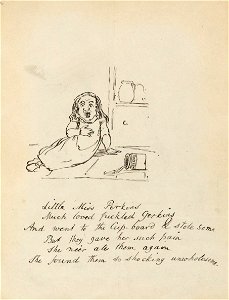 Little Miss Perkins
Much loved pickled Gerkins
And went to the Cupboard & stole some
But they gave her such pain
She ne'er ate them again
She found them so shocking unwholesome.